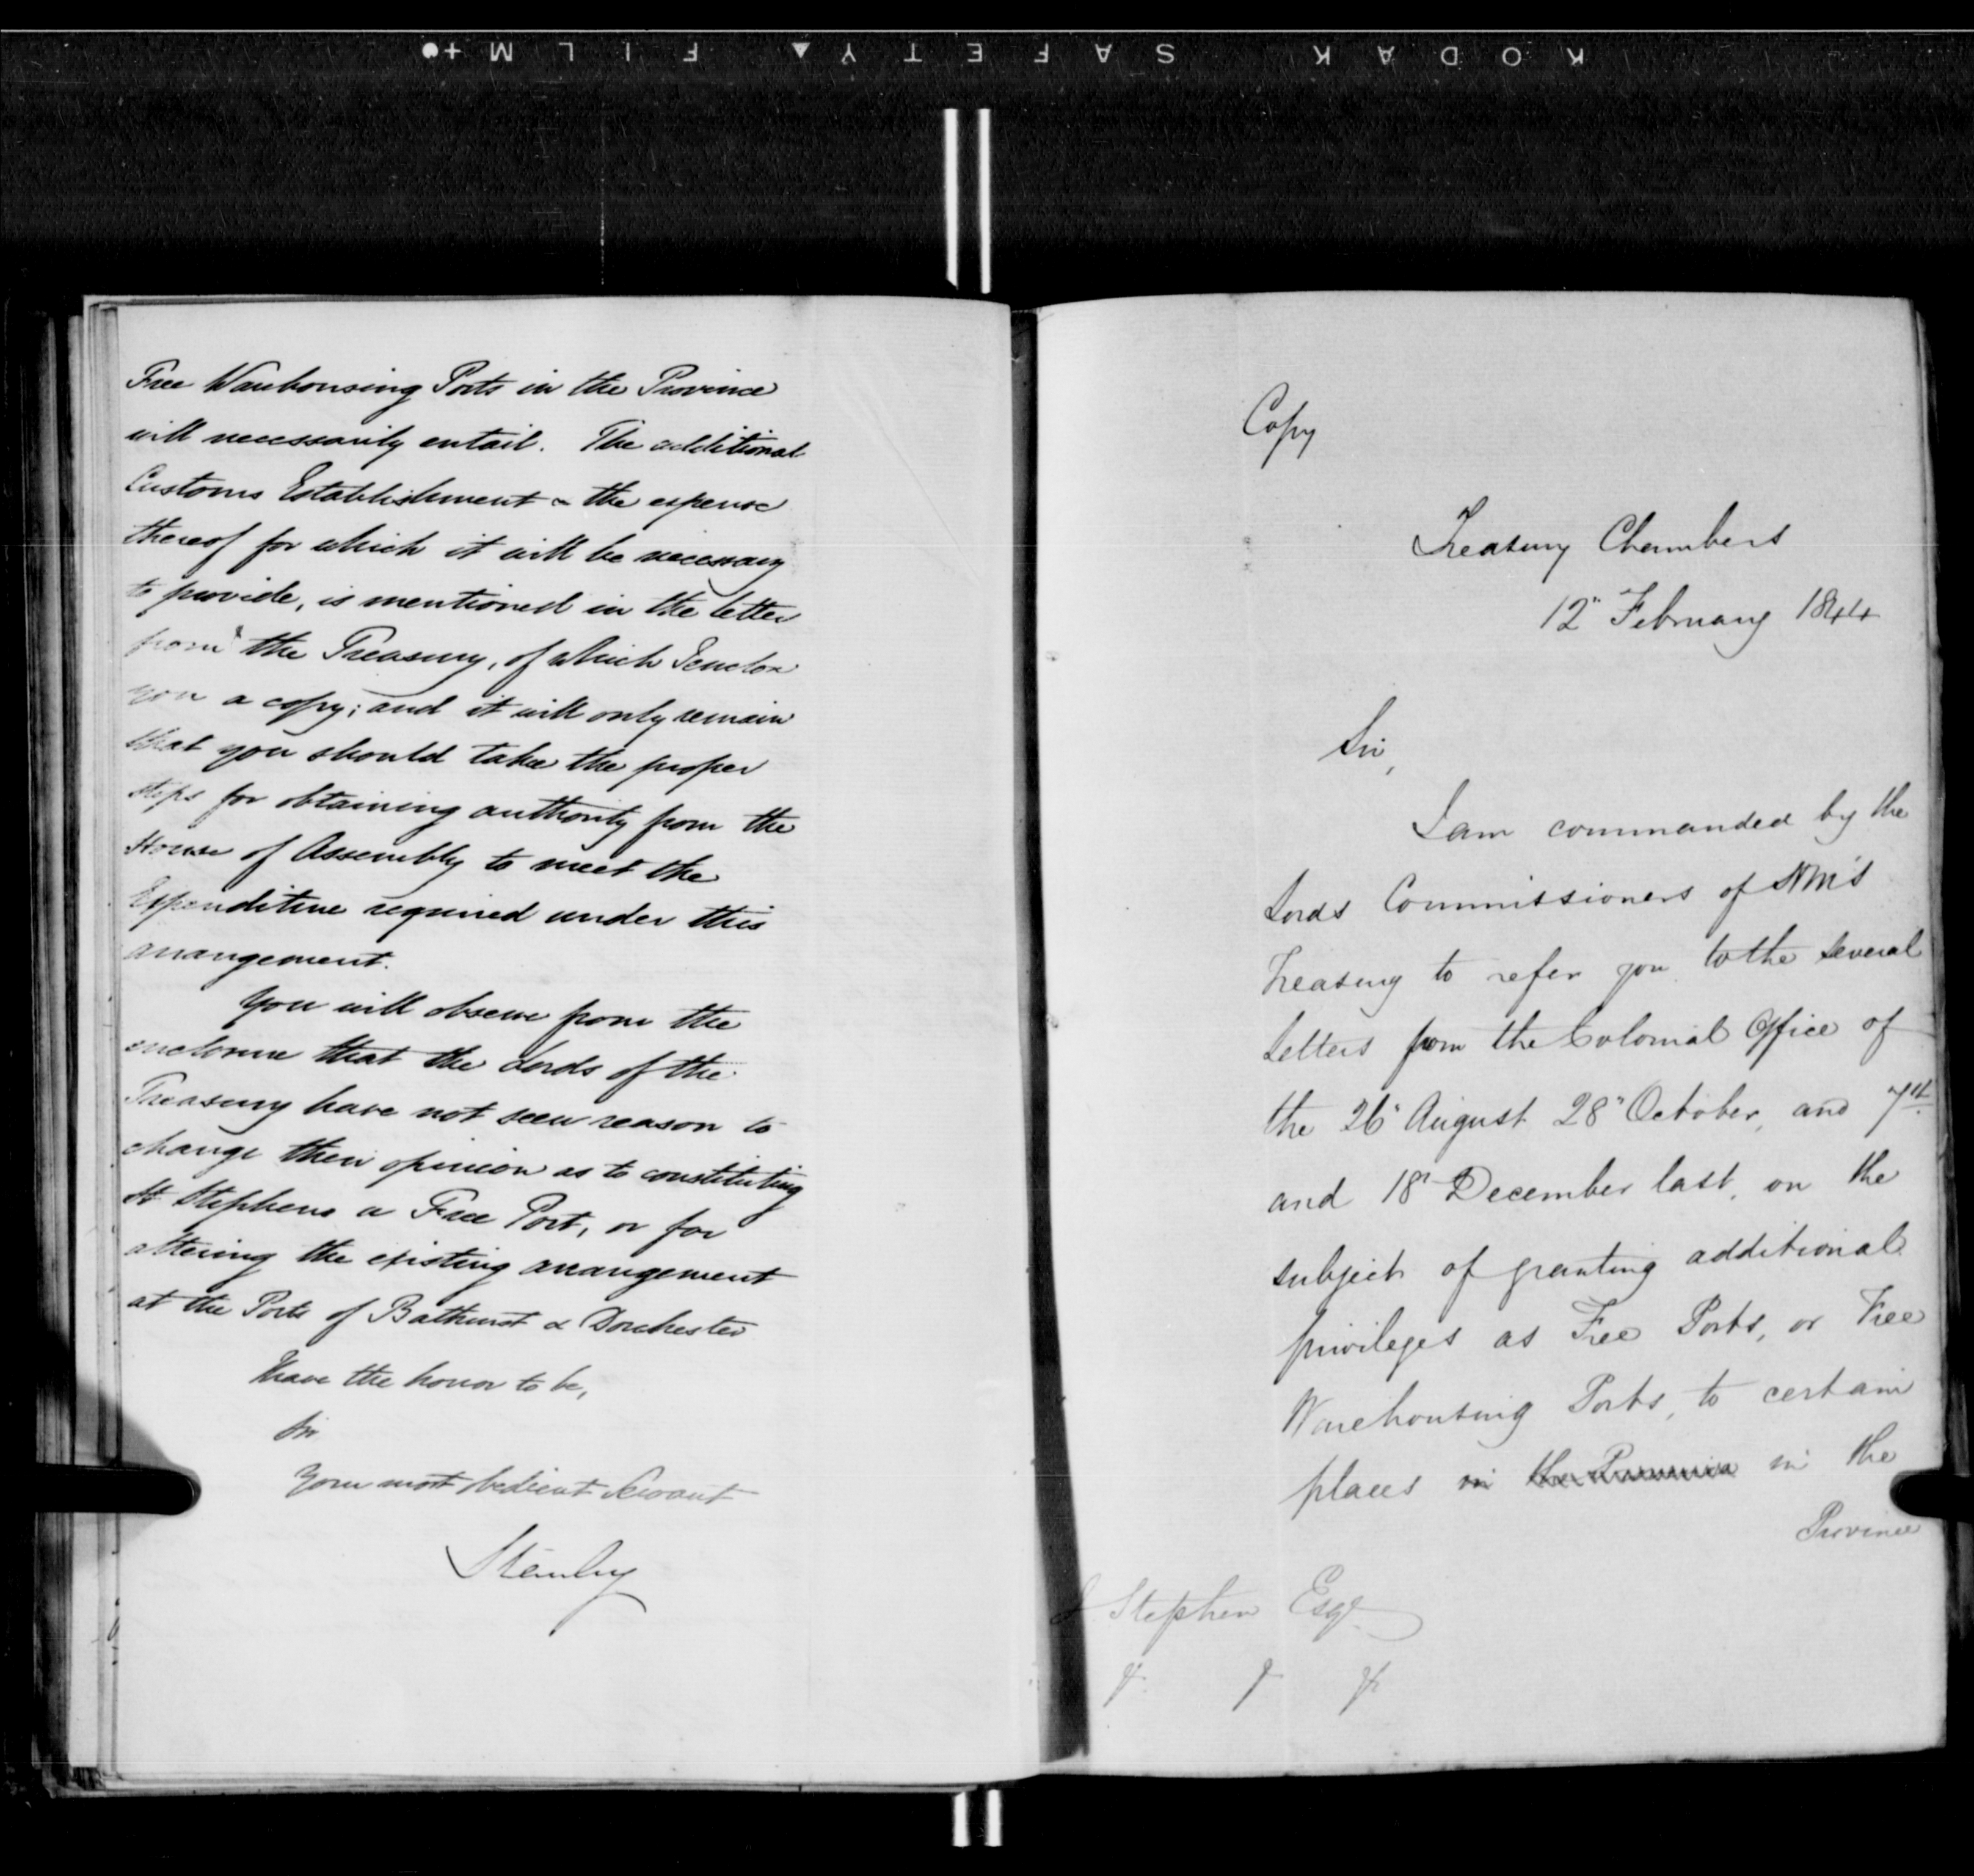 KODAK SAFETY FILM
Free Warehousing Ports in the Province
will necessarily entail. The additional
Customs Establishment & the expense
thereof for which it will be necessary
to provide, is mentioned in the letter
from the Treasury, of which I enclose
you a copy; and it will only remain
that you should take the proper
steps for obtaining authority from the
House of Assembly to meet the
Expenditure required under this
arrangement.
You will observe from the
enclosure that the Lords of the
Treasury have not seen reason to
change their opinion as to constituting
St Stephens a Free Port, or for
altering the existing arrangement
at the Ports of Bathurst & Dorchester
I have the honor to be,
Sir
Your most obedient Servant
Stanley
Copy
Treasury Chambers
12" February 1844
Sir,
I am commanded by the
Lords Commissioners of HM's
Treasury to refer you to the several
Letters from the Colonial Office of
the 26" August 28" October, and 7th
and 18" December last, on the
subject of granting additional
privileges as Free Ports, or Free
Warehousing Ports, to certain
places in the Province in the
Province
J. Stephen Esqr